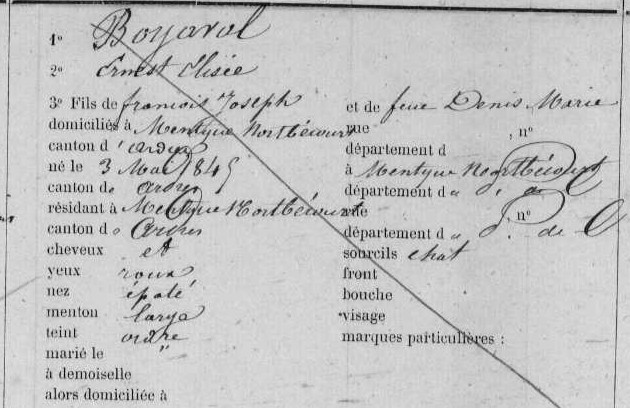 1º Boyaval
2º Ernest Elisée
3º Fils de francois Joseph et de feue Denis Marie
domiciliés à Mentque Nortbécourt rue , nº
canton d'ardres département d
né le 3 Mai 1845 à Mentque Nortbécourt
canton de ardres département d
résidant à Mentque Nortbécourt rue , nº
canton de ardres département d P. de C
cheveux et sourcils chat
yeux roux front
nez épaté bouche
menton large visage
teint ordre marques particulières :
marié le "
à demoiselle
alors domiciliée à